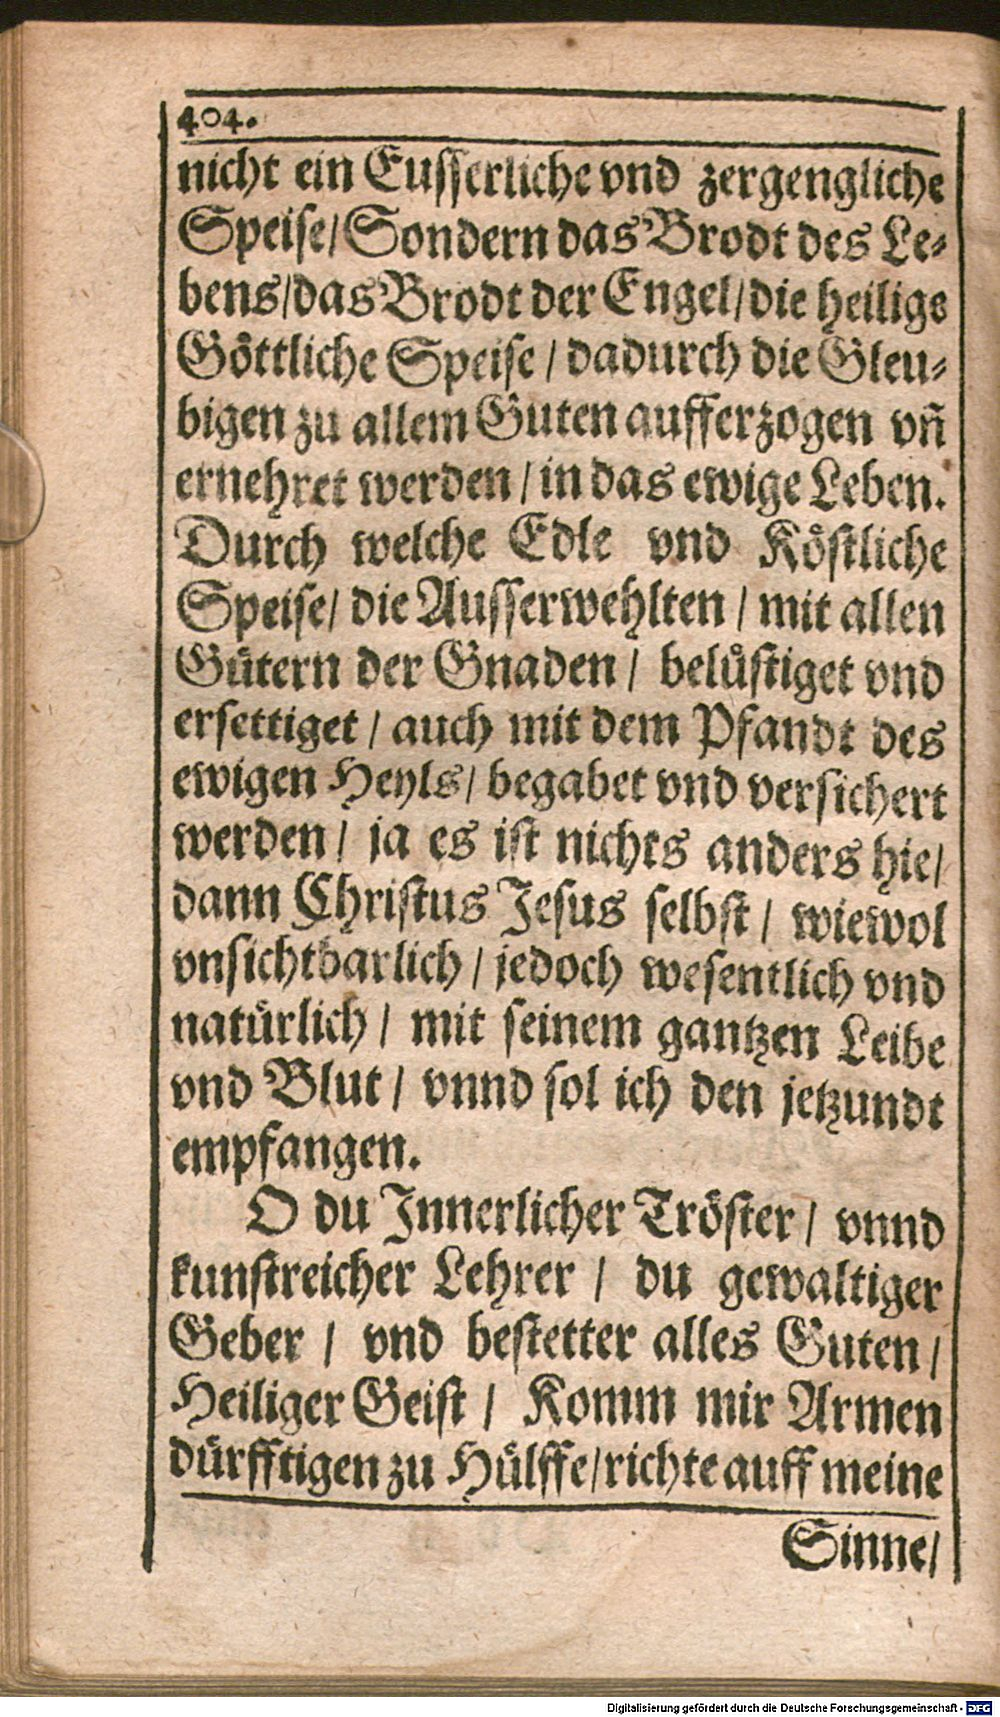 404.
nicht ein Eusserliche vnd zergengliche
Speise/ Sondern das Brodt des Le-
bens/ das Brodt der Engel/ die heilige
Göttliche Speise / dadurch die Gleu-
bigen zu allem Guten aufferzogen vñ
ernehret werden / in das ewige Leben.
Durch welche Edle vnd Köstliche
Speise/ die Ausserwehlten / mit allen
Gütern der Gnaden / belüstiget vnd
ersettiget / auch mit dem Pfandt des
ewigen Heyls/ begabet vnd versichert
werden / ja es ist nichts anders hie/
dann Christus Jesus selbst / wiewol
vnsichtbarlich / jedoch wesentlich vnd
natürlich / mit seinem gantzen Leibe
vnd Blut / vnnd sol ich den jetzundt
empfangen.
O du Innerlicher Tröster / vnnd
kunstreicher Lehrer / du gewaltiger
Geber / vnd bestetter alles Guten /
Heiliger Geist / Komm mir Armen
dürfftigen zu Hülffe/ richte auff meine
Sinne/
Digitalisierung gefördert durch die Deutsche Forschungsgemeinschaft - DFG